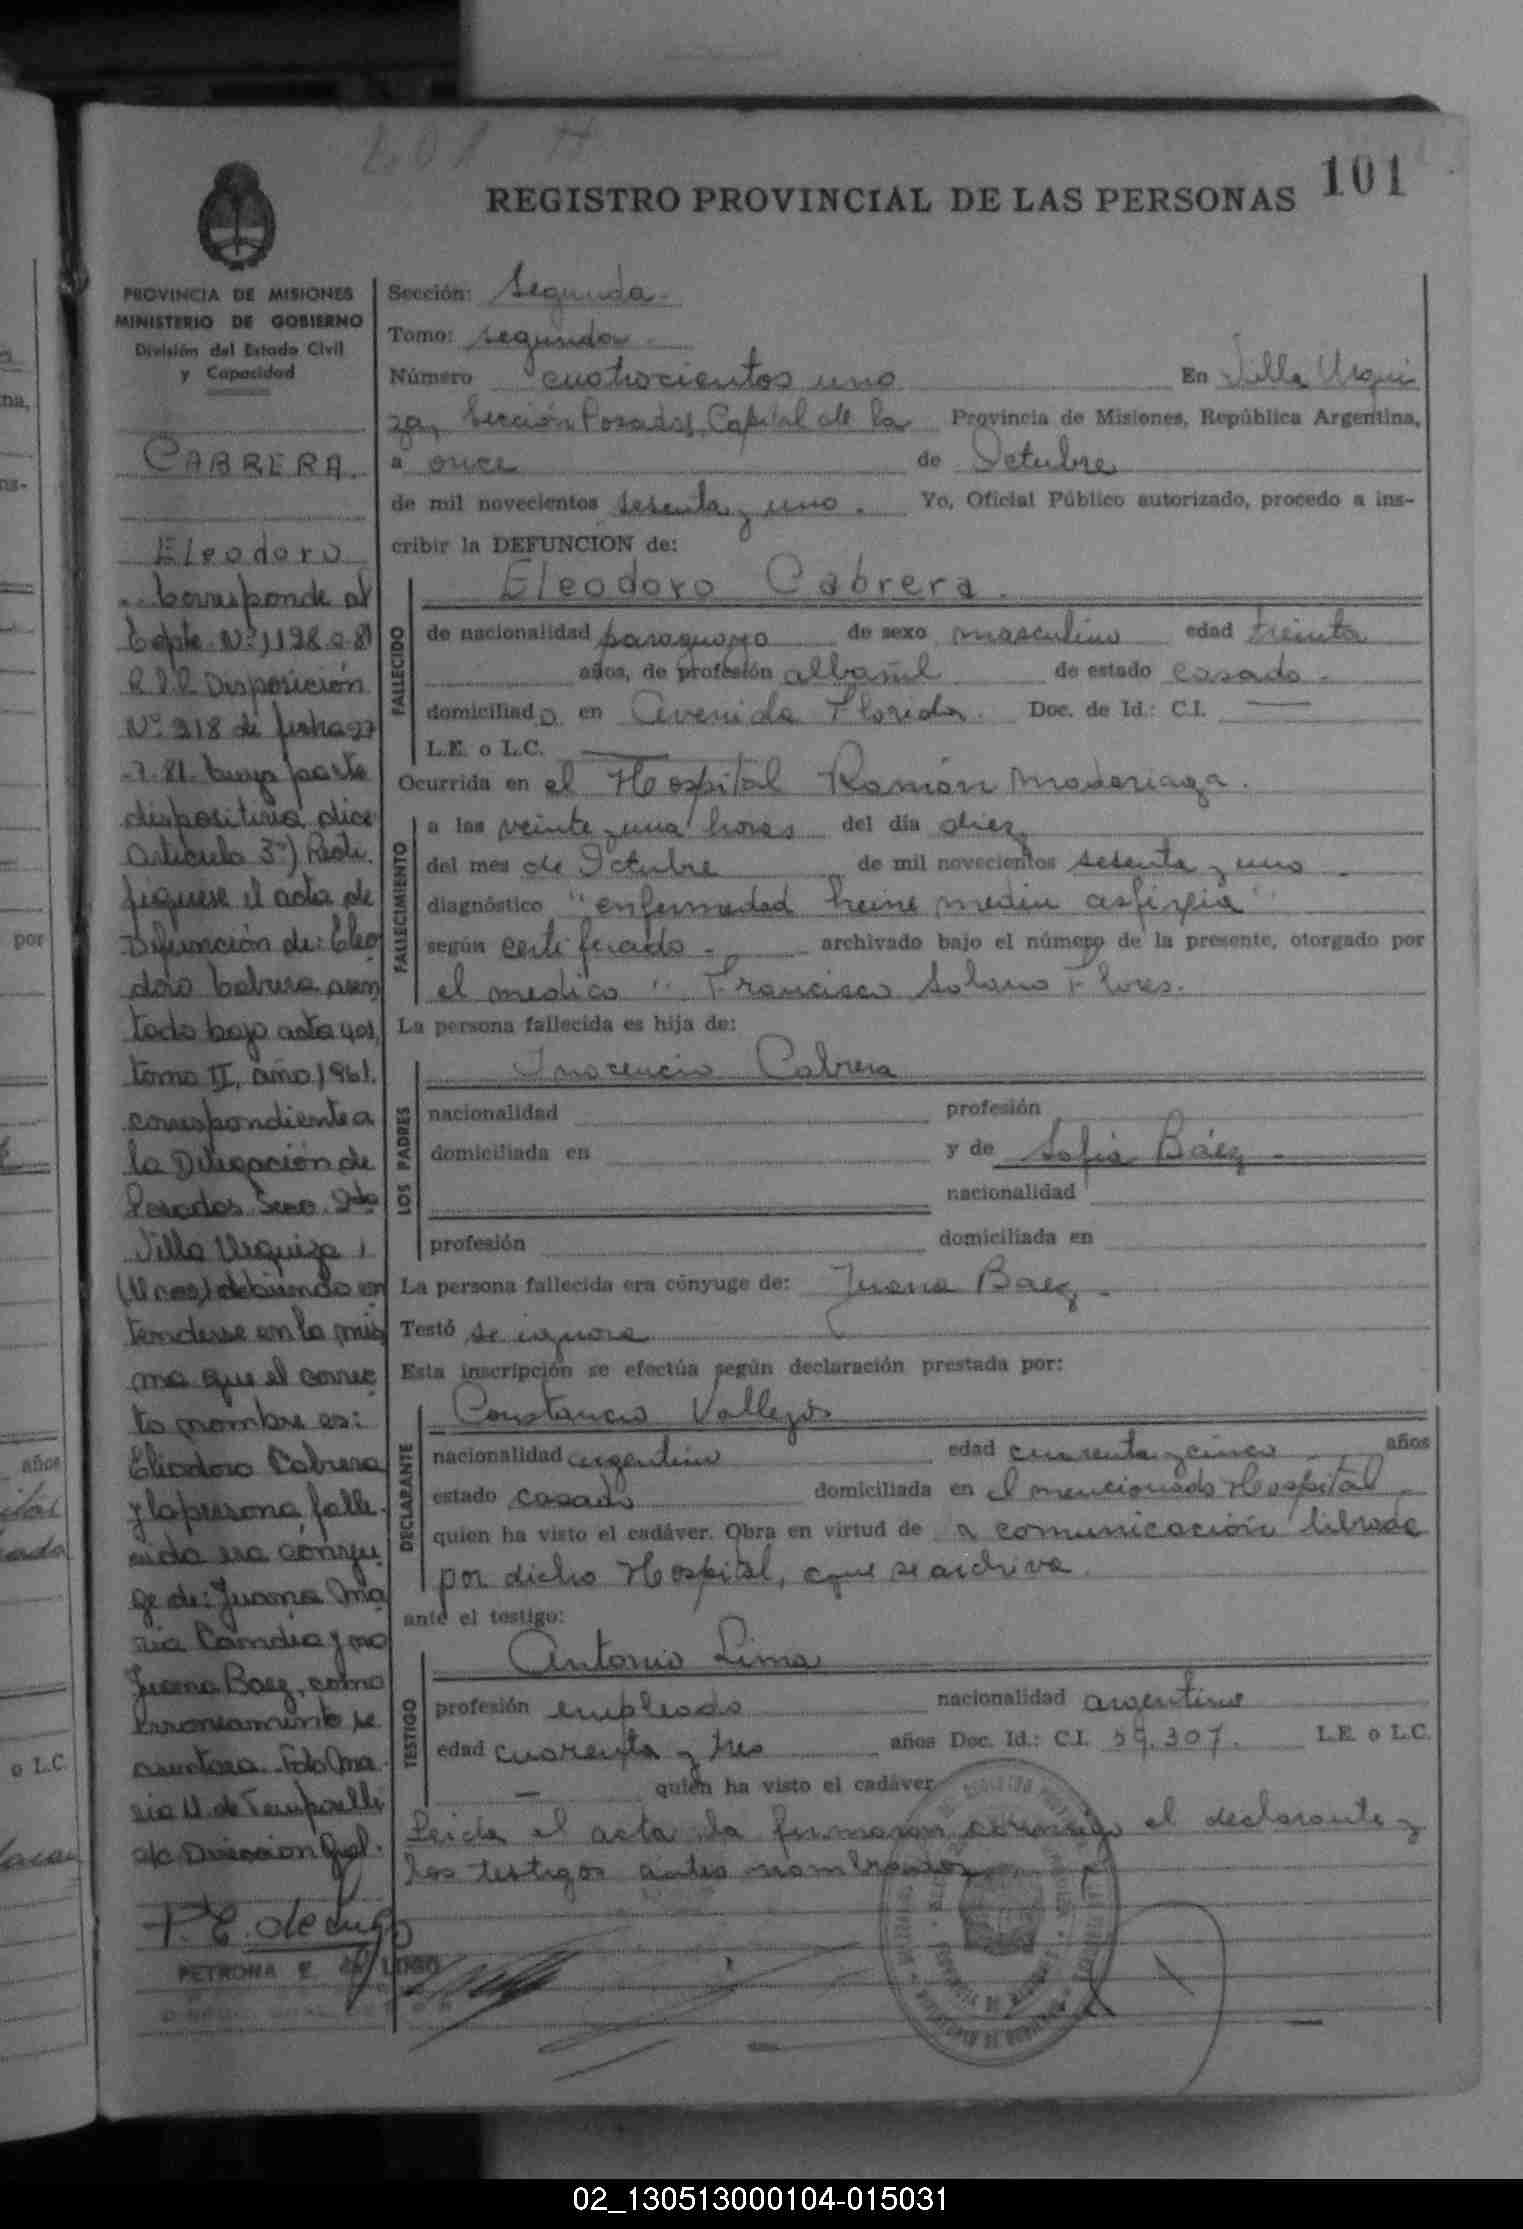 401
REGISTRO PROVINCIAL DE LAS PERSONAS 101
PROVINCIA DE MISIONES
MINISTERIO DE GOBIERNO
División del Estado Civil
y Capacidad
CABRERA.
Eleodoro
Corresponde al
Expte. Nº 1198-0-81
R.P.P. Disposición
Nº 318 de fecha 27
-7-81. Cuya parte
dispositiva dice
Artículo 3º) Recti-
fíquese el acta de
Defunción de: Eleo
doro Cabrera asen
tado bajo acta 401,
tomo II, año 1961.
correspondiente a
la Delegación de
Posadas Secc. 2da
Villa Urquiza,
debiendo en
tenderse en la mis
ma que el correc
to nombre es:
Eliodoro Cabrera
y la persona falle-
cida era cónyu
ge de: Juana Ma
ria Candia y no
Juana Baez, como
erroneamente se
asentara. Fdo Ma-
ria U. de Temporelli
a/c Dirección Gral.
P. E. de Lugo
PETRONA E. de LUGO
Sección: Segunda.
Tomo: segundo.
Número cuatrocientos uno En Villa Urqui
za, Sección Posadas, Capital de la Provincia de Misiones, República Argentina,
a once de Octubre
de mil novecientos sesenta y uno. Yo, Oficial Público autorizado, procedo a ins-
cribir la DEFUNCION de:
FALLECIDO
Eleodoro Cabrera.
de nacionalidad paraguayo de sexo masculino edad treinta
años, de profesión albañil de estado casado.
domiciliado en Avenida Florida. Doc. de Id.: C.I. —
L.E. o L.C. —
Ocurrida en el Hospital Ramón Madariaga.
FALLECIMIENTO
a las veinte y una horas del día diez
del mes de Octubre de mil novecientos sesenta y uno
diagnóstico "enfermedad heine mediu asfixia"
según certificado. archivado bajo el número de la presente, otorgado por
el medico " Francisco Solano Flores.
La persona fallecida es hija de:
LOS PADRES
Inocencio Cabrera
nacionalidad profesión
domiciliada en y de Sofia Báez.
nacionalidad
profesión domiciliada en
La persona fallecida era cónyuge de: Juana Baez.
Testó se ignora
Esta inscripción se efectúa según declaración prestada por:
DECLARANTE
Constancio Vallejos
nacionalidad argentino edad cuarenta y cinco años
estado casado domiciliada en el mencionado Hospital
quien ha visto el cadáver. Obra en virtud de a comunicación librada
por dicho Hospital, que se archiva.
ante el testigo:
TESTIGO
Antonio Lima
profesión empleado nacionalidad argentino
edad cuarenta y tres años Doc. Id.: C.I. 59.307. L.E. o L.C.
— quien ha visto el cadáver
Leida el acta la firmaron conmigo el declarante y
los testigos antes nombrados
02_130513000104-015031